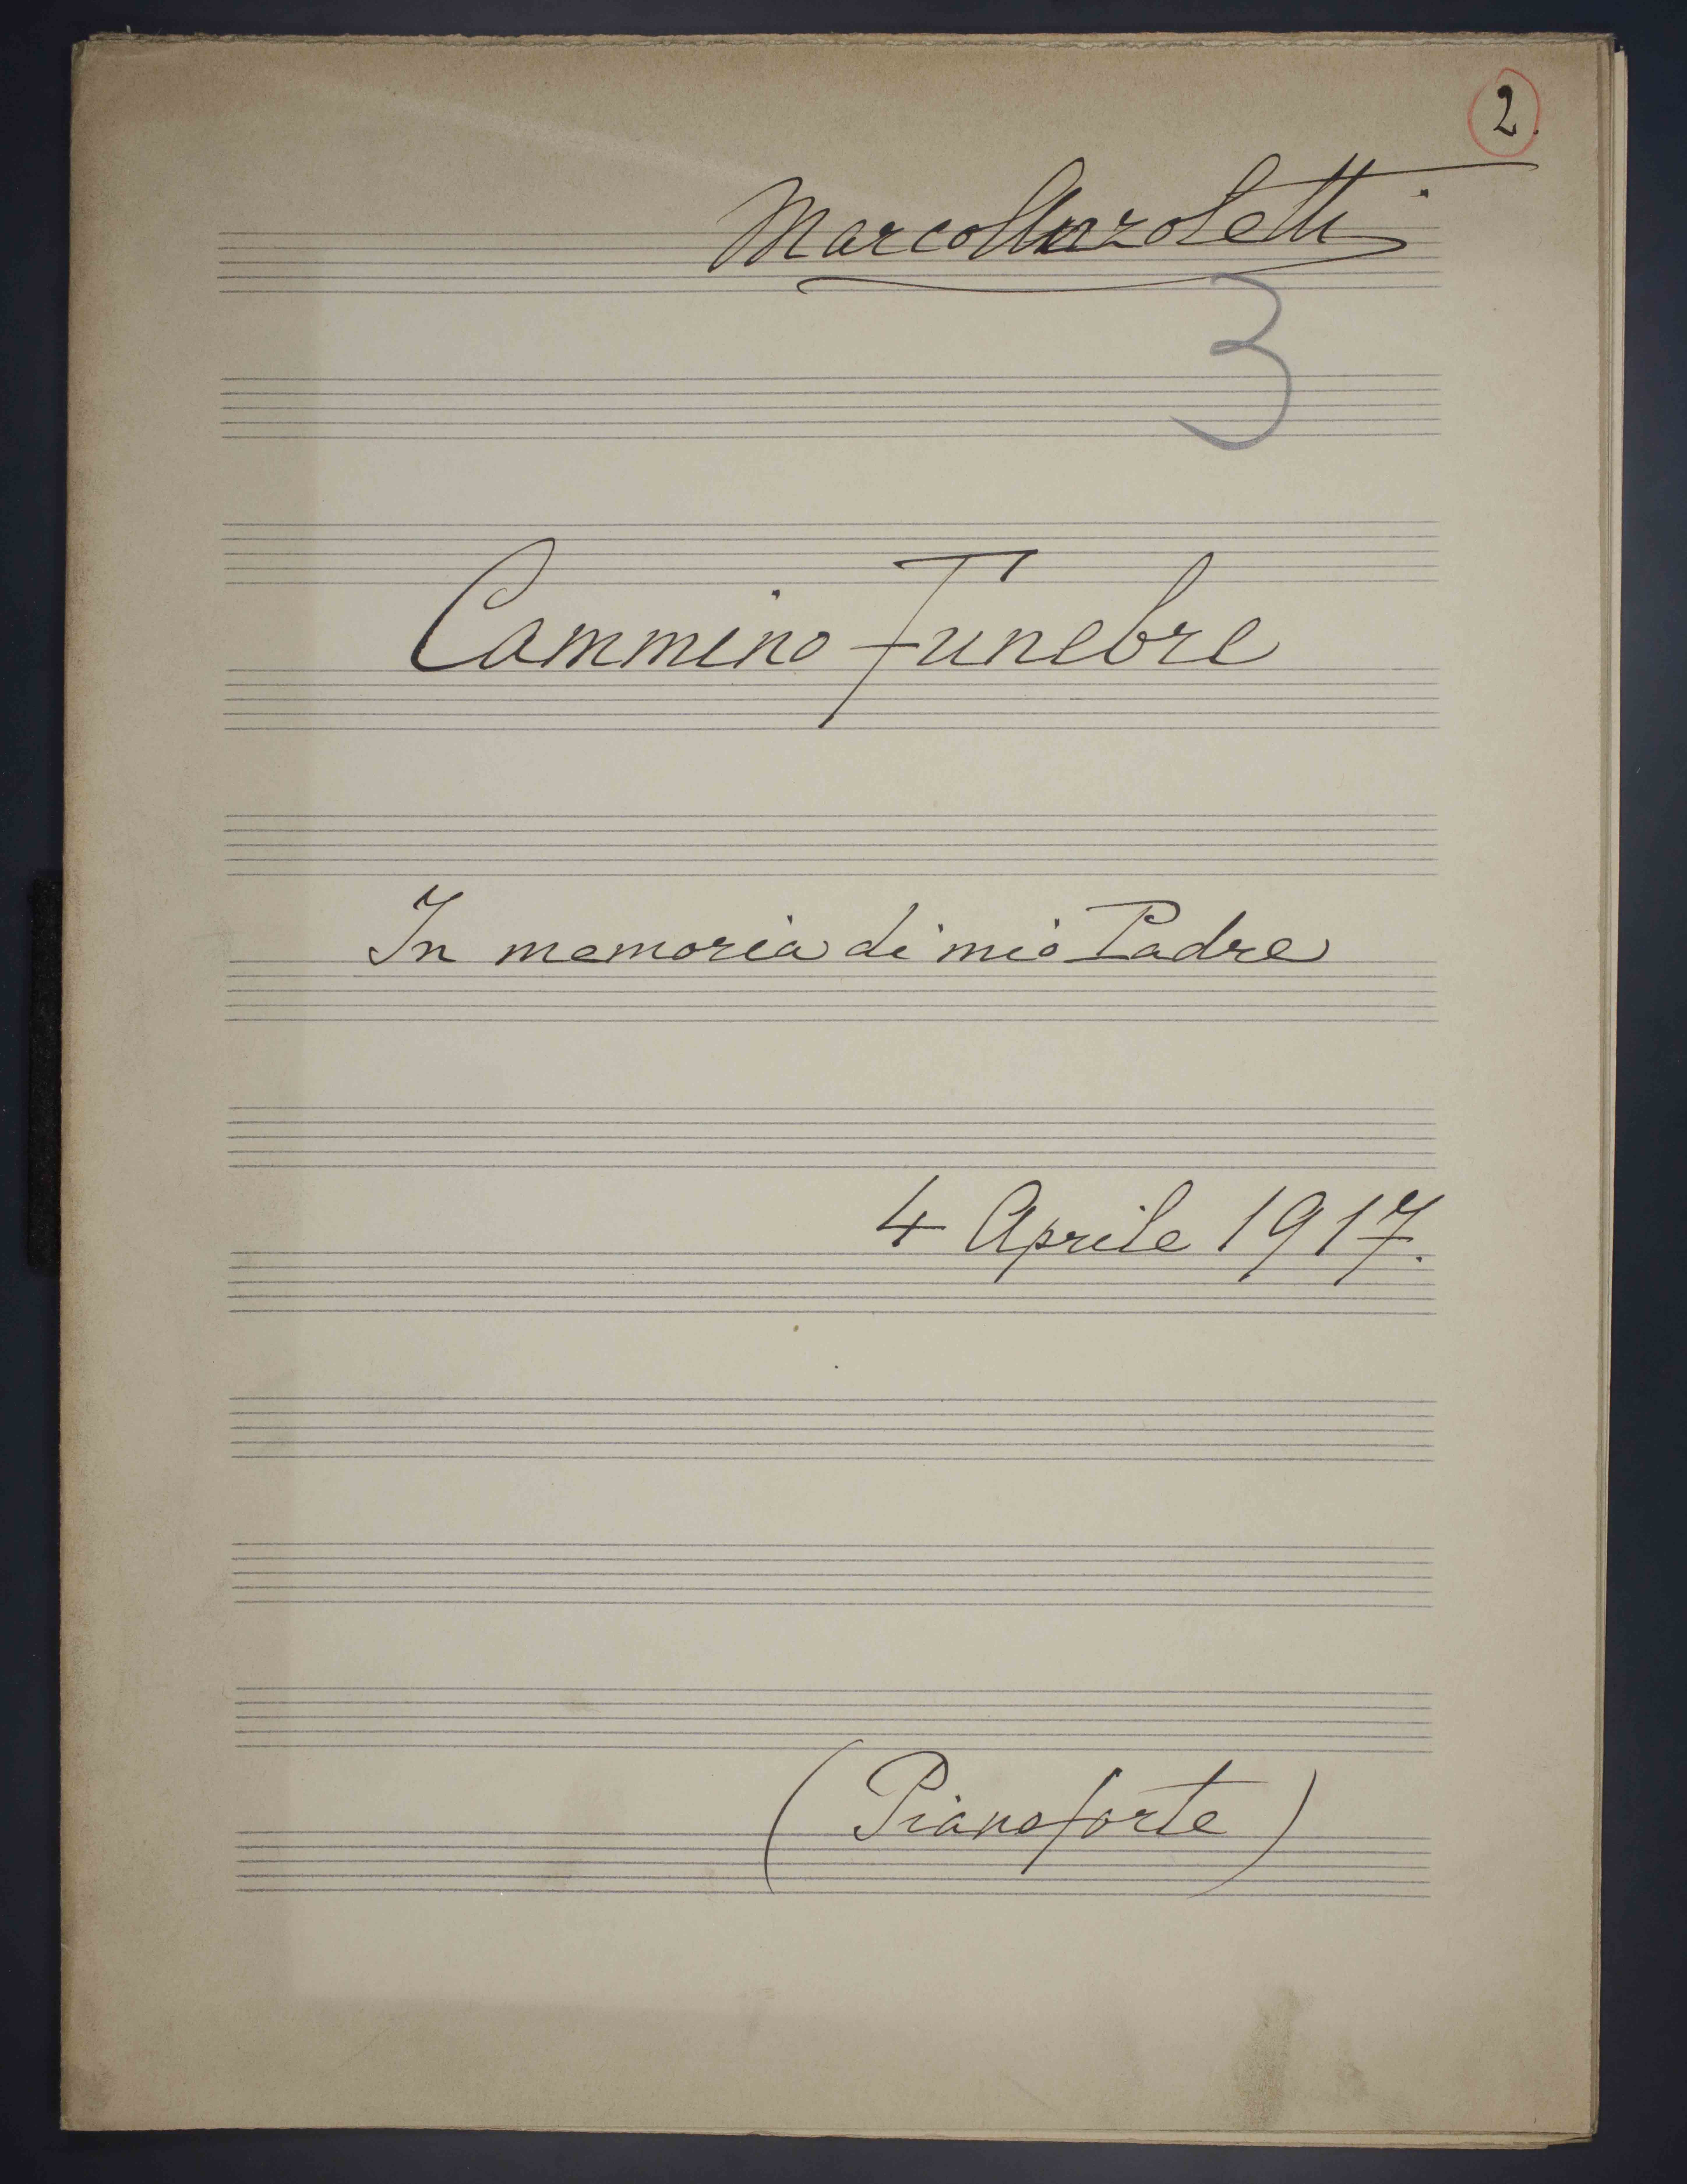 2.
Marco Anzoletti
3
Cammino Funebre
In memoria di mio Padre
4 Aprile 1917.
(Pianoforte)